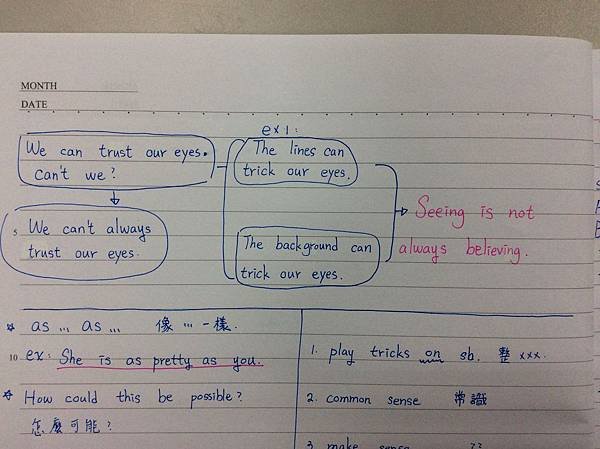 MONTH
DATE
We can trust our eyes.
Can't we?
We can't always
trust our eyes.
ex1:
The lines can
trick our eyes.
The background can
trick our eyes.
Seeing is not
always believing.
5
☆ as … as … 像…一樣.
10 ex: She is as pretty as you.
☆ How could this be possible?
怎麼可能?
1. play tricks on sb. 整×××.
2. common sense 常識
3. make sense